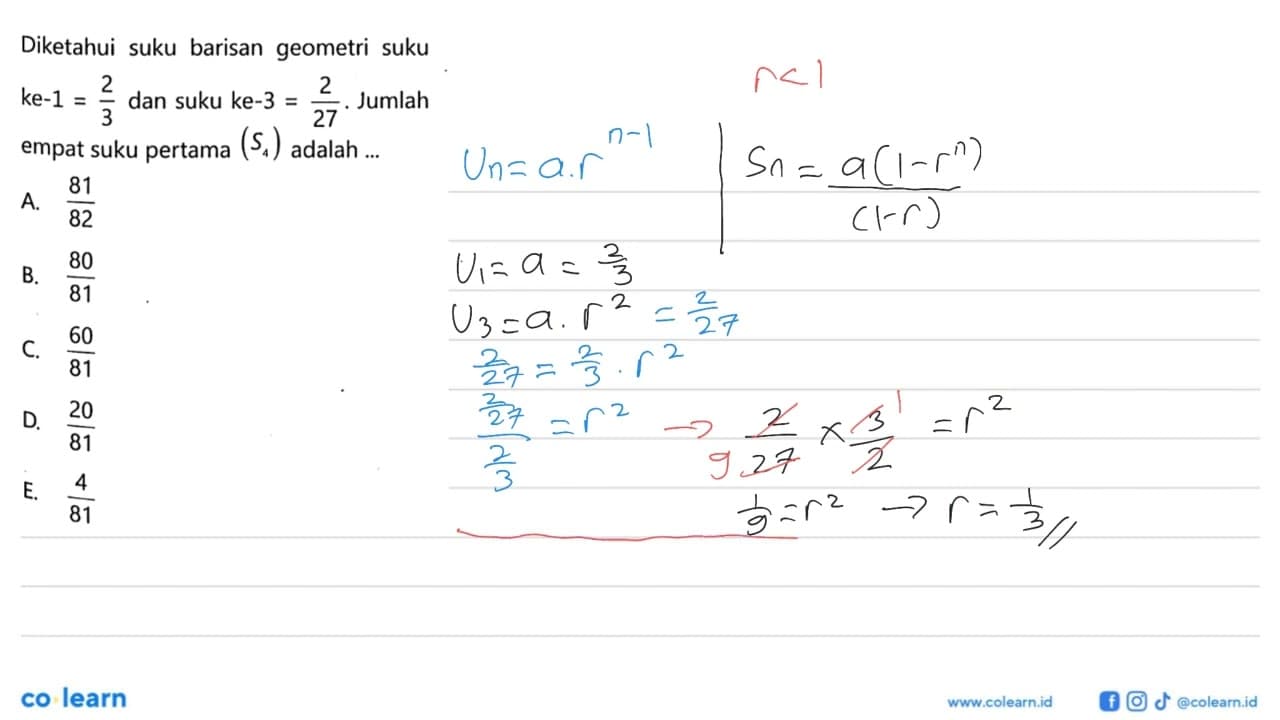 Diketahui suku barisan geometri suku
ke-1 = 2/3 dan suku ke-3 = 2/27. Jumlah
empat suku pertama (S₄) adalah ...
A. 81/82
B. 80/81
C. 60/81
D. 20/81
E. 4/81
r<1
Un = a.r^(n-1)
Sn = a(1-r^n)/(1-r)
U₁ = a = 2/3
U₃ = a.r² = 2/27
2/27 = 2/3 . r²
(2/27)/(2/3) = r² → 2/27 × 3/2 = r²
9 1
1/9 = r² → r = 1/3 //
co learn
www.colearn.id
@colearn.id